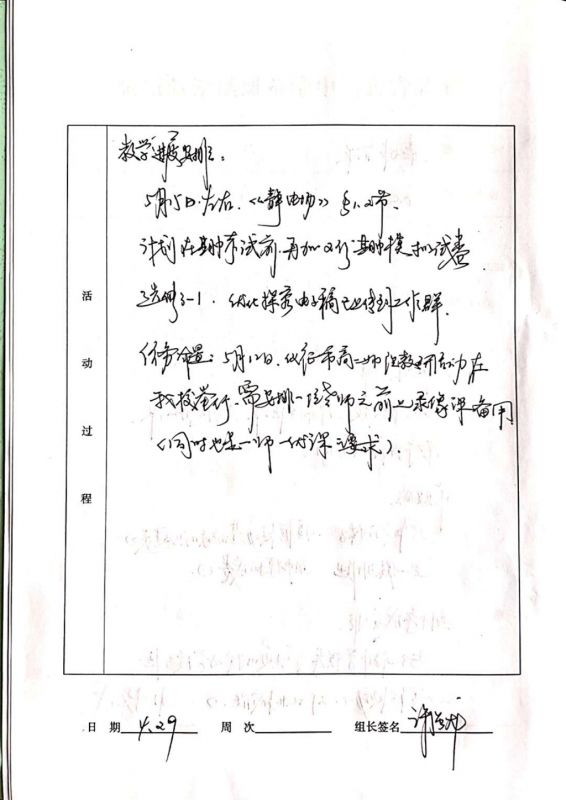 教学进度安排:
5月15日左右.《静电场》§1.2节.
计划在期中考试前.再加文行期中模拟试卷
选修3-1.优化探索电子稿已上传到工作群.
任务布置:5月 日.仪征市高二物理教研活动在
我校举行.需安排一位老师之前上录像课备用
(同时也是一师一优课之要求).
活动过程
日 期 4.29 周 次 组长签名